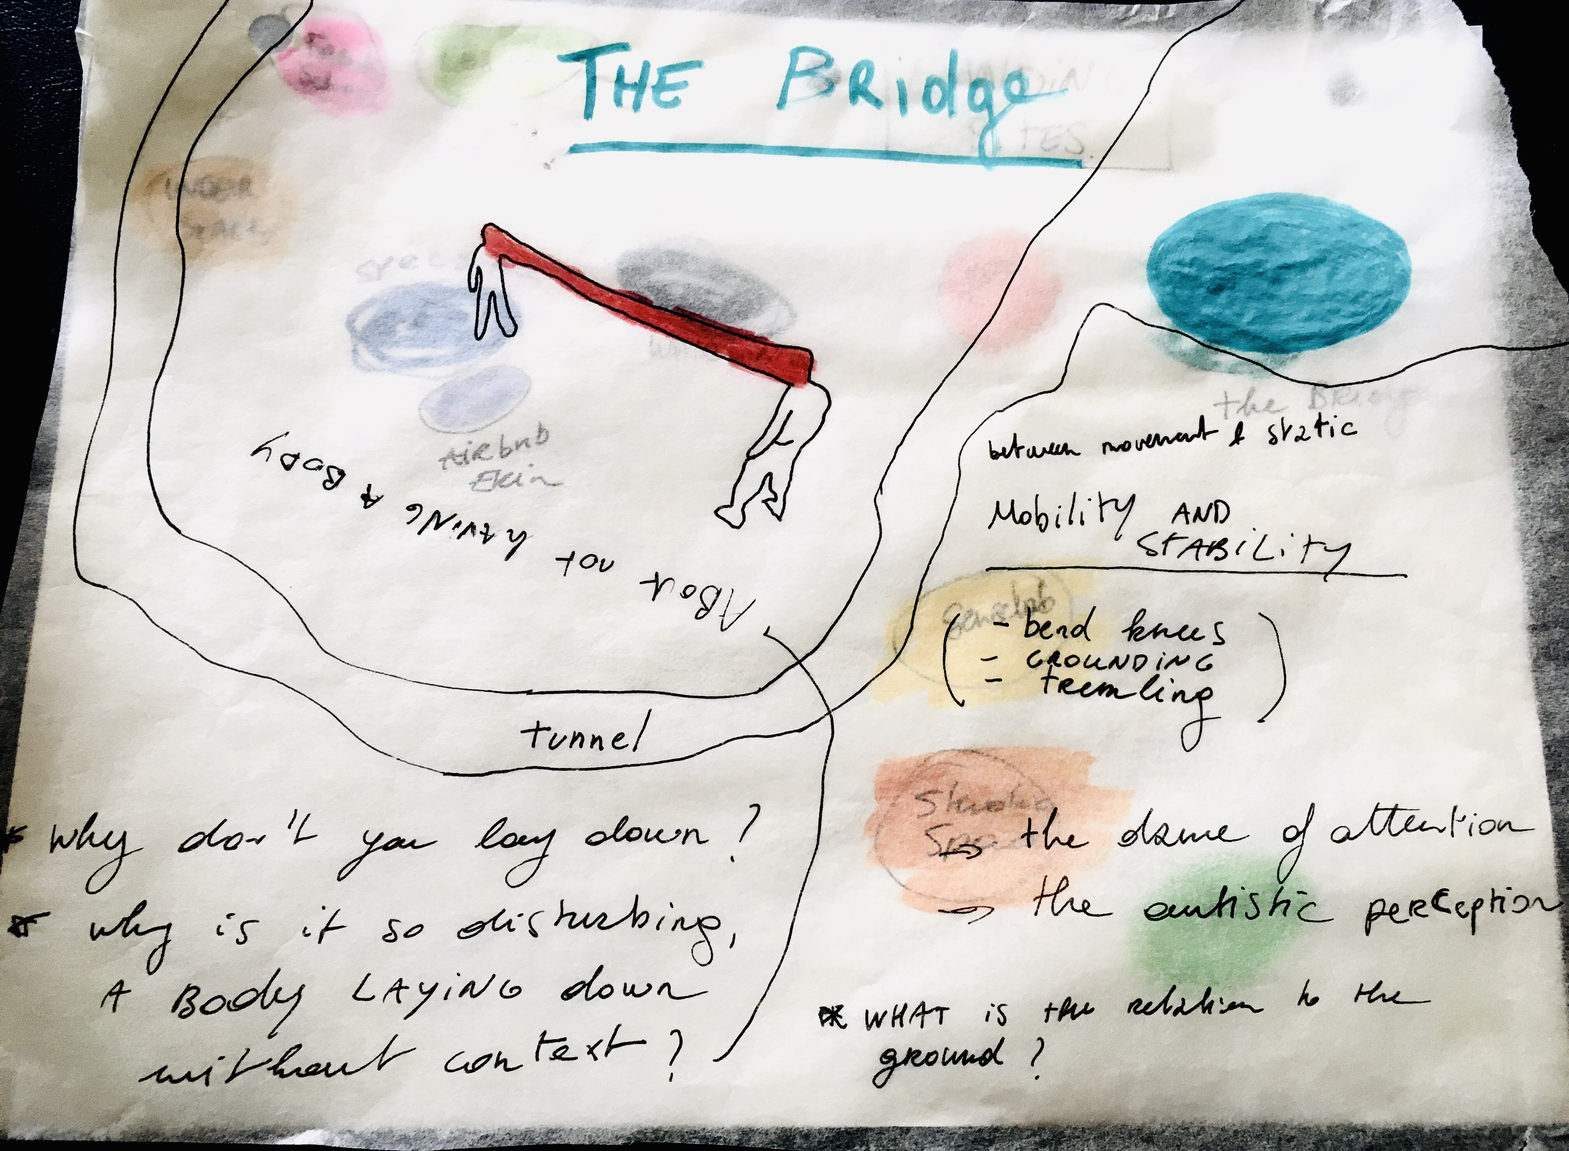 THE BRidge
UNDER
SPACE
Airbnb
Ekin
the BRidge
between movement & static
Mobility AND
STABiLiTy
Senselab
- bend knees
- GROUNDING
- tremling
ABout not hAViNG A BoDy
tunnel
* why don't you lay down?
* why is it so disturbing,
A BODy LAYiNG down
without context?
the danse of attention
the autistic perception
* WHAT is the relation to the
ground?